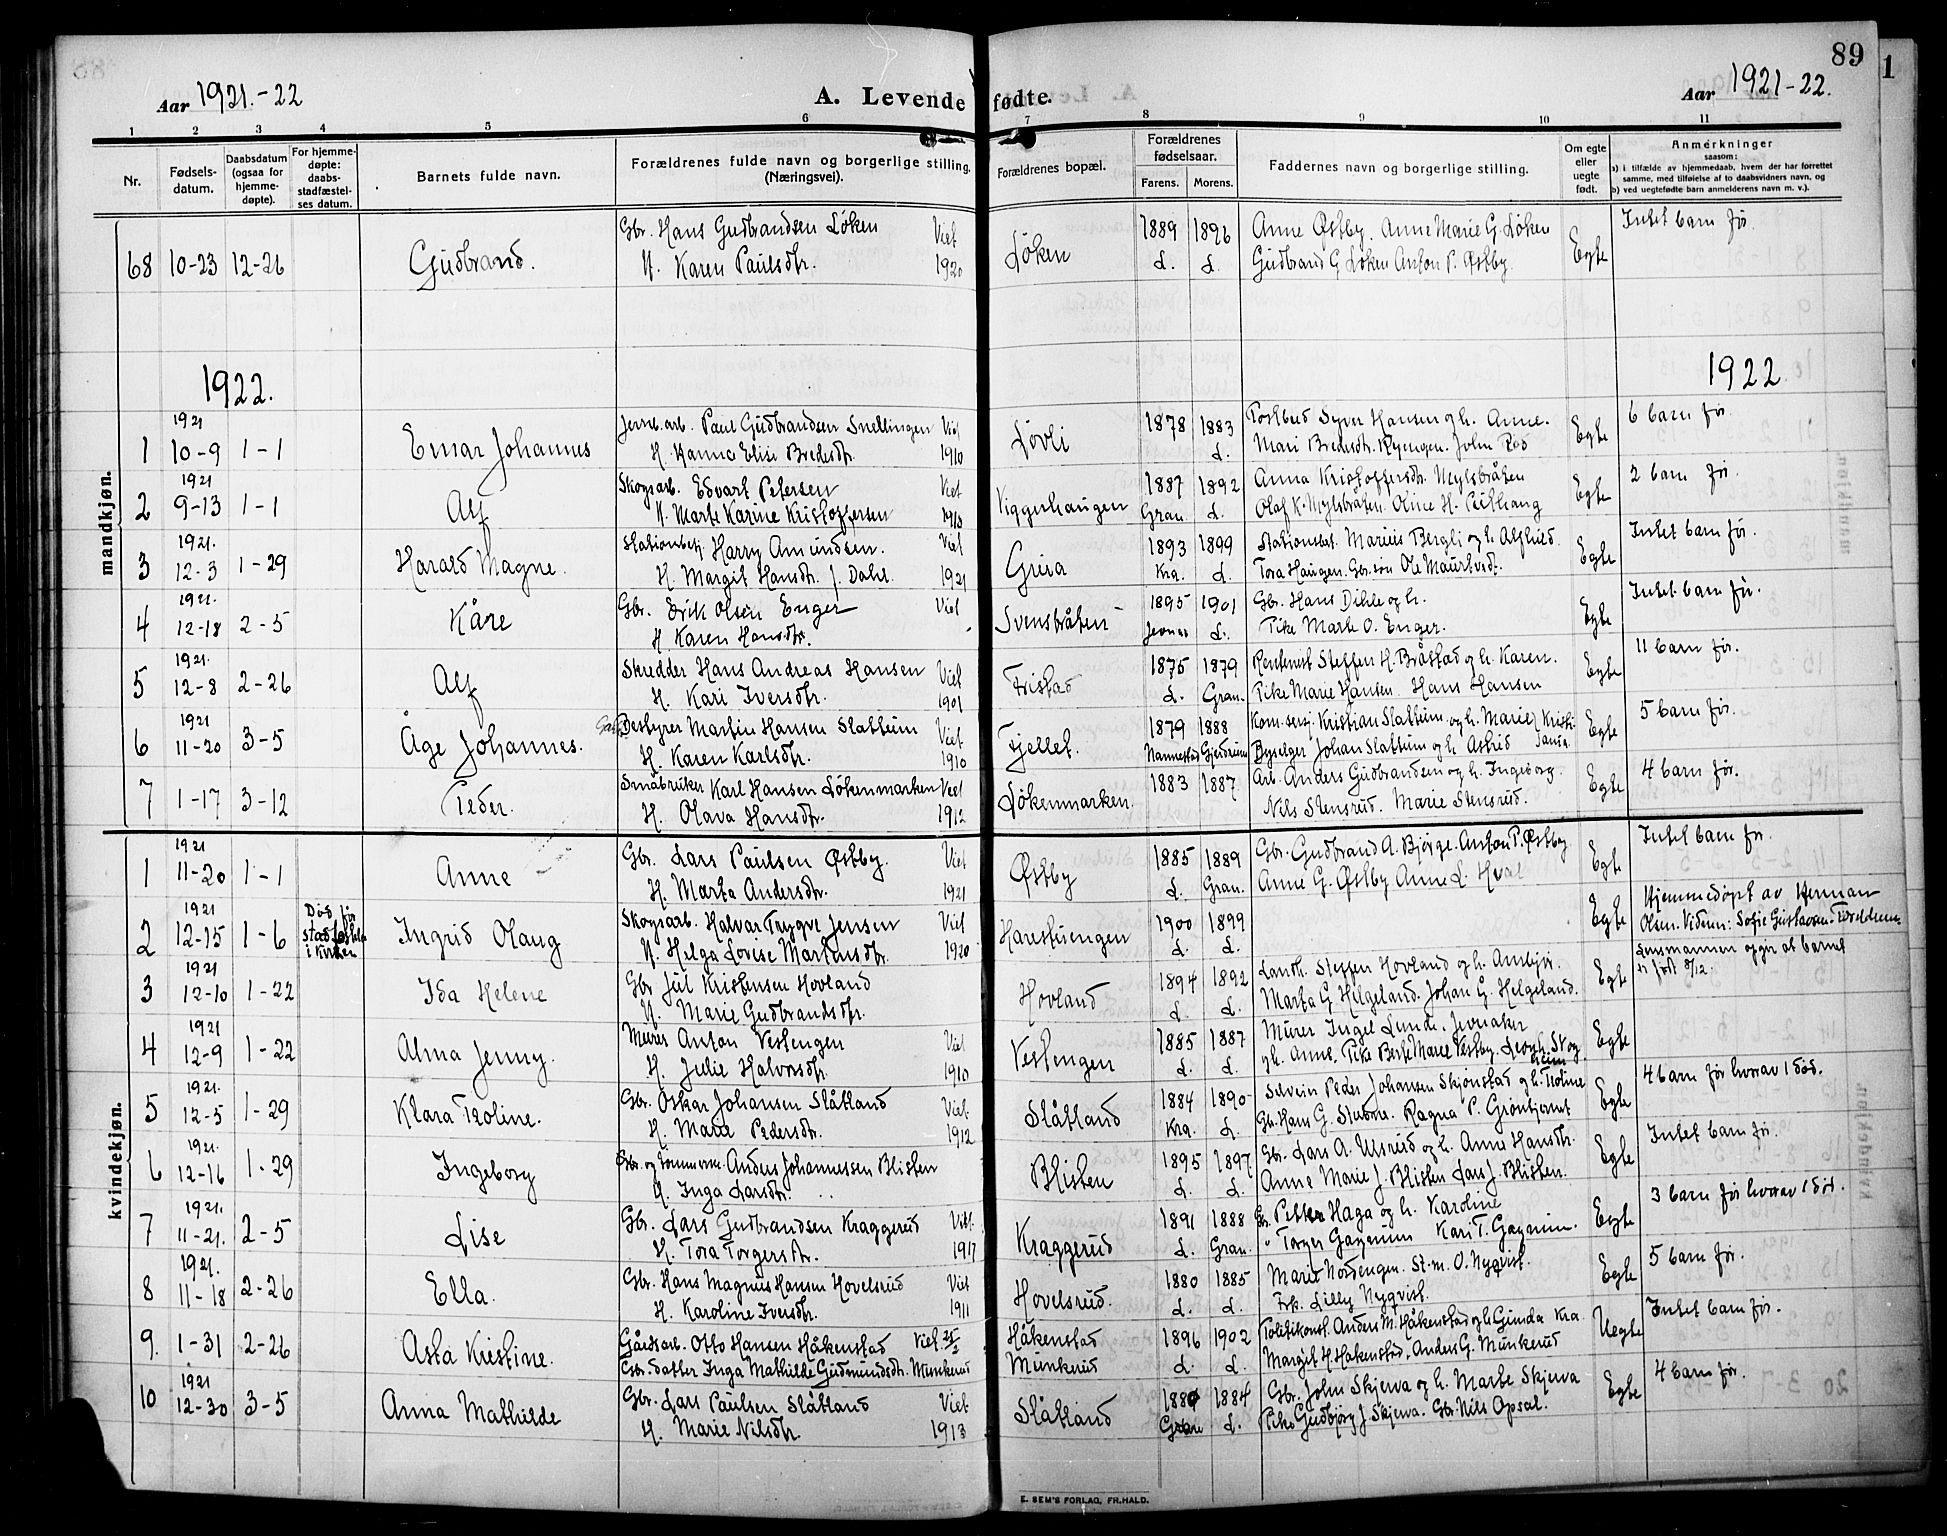 89
1
Aar 1921.-22
A. Levende fødte.
Aar 1921-22.
1 2 3 4 5 6 7 8 9 10 11
Nr.
Fødsels-
datum.
Daabsdatum
(ogsaa for
hjemme-
døpte).
For hjemme-
døpte:
daabs-
stadfæstel-
ses datum.
Barnets fulde navn.
Forældrenes fulde navn og borgerlige stilling.
(Næringsvei).
Forældrenes bopæl.
Forældrenes
fødselsaar.
Farens. Morens.
Faddernes navn og borgerlige stilling.
Om egte
eller
uegte
født.
Anmerkninger
saasom:
a) i tilfælde av hjemmedaab, hvem der har forrettet
samme, med tilføielse af to daabsvidners navn, og
b) ved uegtefødte barn anmelderens navn m. v.).
Gbr. Hans Gudbrandsen Løken Viet 1889 1896 Anne Østby. Anne Marie G. Løken Intet barn før.
68 10-23 12-26 Gudbrand. H. Karen Paulsdtr. 1920 Løken L. L. Gudbrand G. Løken Anton P. Østby. Egte
1922. 1922
mandkjøn.
1921 Jernb.arb. Paul Gudbrandsen Snellingen Viet 1878 1883 Postbud Syver Hansen og h. Anne. 6 barn før.
1 10-9 1-1 Einar Johannes H. Hanna Elise Bredesdtr. 1910 Løvli L. Mari Bredesdtr. Ryengen. John Egte
1921 Skogsarb. Edvart Petersen Viet 1887 1892 Anna Kristoffersdtr. Mylsbråten 2 barn før
2 9-13 1-1 Alf H. Marte Karine Kristoffersen 1910 Viggerhaugen Gran L. Olaf K. Mylsbråten. Oline H. Egte
1921. Harry Amundsen. Viet 1893 1899 Stationsbet. Marius Bergli og h. Alfhild. Intet barn før.
3 12-3 1-29 Harald Magne. H. Margit Hansdtr. f. Dahl 1921 Grua Kra. L. Tora Haugen. Gbr.søn Ole Egte
1921. Gbr. Erik Olsen Enger Viet 1895 1901 Gbr. Hans Dihle og h. Intet barn før.
4 12-18 2-5 Kåre H. Karen Hansdtr. Svenstråten L. Pike Marte O. Enger. Egte
1921. Skredder Hans Andreas Hansen Viet 1875 1879 Rentenist Steffen H. Bråstad og h. Karen. 11 barn før.
5 12-8 2-26 Alf H. Kari Iversdtr. 1901 Fristad L. Gran. Pike Marie Hansen. Hans Hansen Egte
1921 Bestyrer Martin Hansen Slattum Viet 1879 1888 Kom.sersj. Kristian Slattum og h. Marie Kristi- 5 barn før.
6 11-20 3-5 Åge Johannes. H. Karen Karlsdtr. 1910 Fjellet. Nannestad Gjerdrum Byselger Johan Slattum og h. Astrid Egte
Småbruker Karl Hansen Løkenmarken Viet 1883 1887 Arb. Anders Gudbrandsen og h. Ingeborg. 4 barn før.
7 1-17 3-12 Peder. H. Olava Hansdtr. 1912 Løkenmarken. Nils Stensrud. Marie Stensrud. Egte
kvindekjøn.
1921 Gbr. Lars Paulsen Østby. Viet 1885 1889 Gbr. Gudbrand A. Bjørge. Anton P. Østby Intet barn før.
1 11-20 1-1 Anne H. Marta Andersdtr. 1921 Østby L. Gran. Anne G. Østby Anne L. Hval Egte
1921 Død før Skogsarb. Halvar Trygve Jensen Viet 1900 1899 Egte Hjemmedøpt av Herman
2 12-15 1-6 i kirken Ingrid Olaug H. Helga Lovise Martinsdtr. 1920 Harestuengen L. L. Olsen. Vidner: Sofie Gustavsen.
1921 Gbr. Juel Kristensen Hovland 1894 1892 Landh. Steffen Hovland og h. Lensmannen opgir at barnet
3 12-10 1-22 Ida Helene H. Marie Gudbrandsdtr. Hovland L. L. Marta G. Helgeland. Johan G. Helgeland. Egte er født 8/12.
1921 Murer Anton Vestengen Viet 1885 1887 Murer Ingel Lunde. Jevnaker
4 12-9 1-22 Alma Jenny. H. Julie Halvorsdtr. 1910 Vestengen L. L. og h. Anne. Pike Berte Marie Vestby. Egte
1921. Gbr. Oskar Johansen Slåtland Viet 1884 1890 Selveier Peder Johansen Skjønstad og h. Roline 4 barn før hvorav 1 død.
5 12-5 1-29 Klara Roline. H. Marie Pedersdtr. 1912 Slåtland Kra. L. Gbr. Hans G. Ragna P. Grøntjernet Egte
1921. Gbr. og Anders Johannessen Blisten 1895 1897 Gbr. Lars A. Ulsrud og h. Anne Hansdtr. Intet barn før.
6 12-16 1-29 Ingeborg H. Inga Larsdtr. Blisten L. L. Anne Marie J. Blisten Lars J. Blisten. Egte
1921. Gbr. Lars Gudbrandsen Kraggerud Viet 1891 1888 Gbr. Petter Haga og h. Karoline 3 barn før hvorav 1 død.
7 11-21. 2-5 Lise H. Tora Torgersdtr. 1917 Kraggerud L. Gran. " Torger Gagnum Kari T. Gagnum. Egte
1921. Gbr. Hans Magnus Hansen Hovelsrud Viet 1880 1885 Marie Nordengen. St.m. O. Nyqvist. 5 barn før.
8 11-18 2-26 Ella. H. Karoline Iversdtr. 1911 Hovelsrud. L. L. Frk. Lilly Nyqvist. Egte
Gårdsarb. Otto Hansen Håkenstad Viet 25/2 Håkenstad 1896 1902 Politikonst. Anders M. Håkenstad og h. Gunda Kra. Intet barn før.
9. 1-31 2-26 Asta Kristine. Gbr.datter Inga Mathilde Gudmundsdtr. Munkerud Munkerud L. L. Margit H. Håkenstad. Anders G. Munkerud Uegte
1921 Gbr. Lars Paulsen Slåtland Viet 1880 1884 Gbr. John Skjerva og h. Marte Skjerva 4 barn før.
10 12-30 3-5 Anna Mathilde H. Marie Nilsdtr. 1913 Slåtland L. Pike Gudbjørg J. Skjerva. Gbr. Nils Opsal. Egte
E. SEM'S FORLAG, FR.HALD.